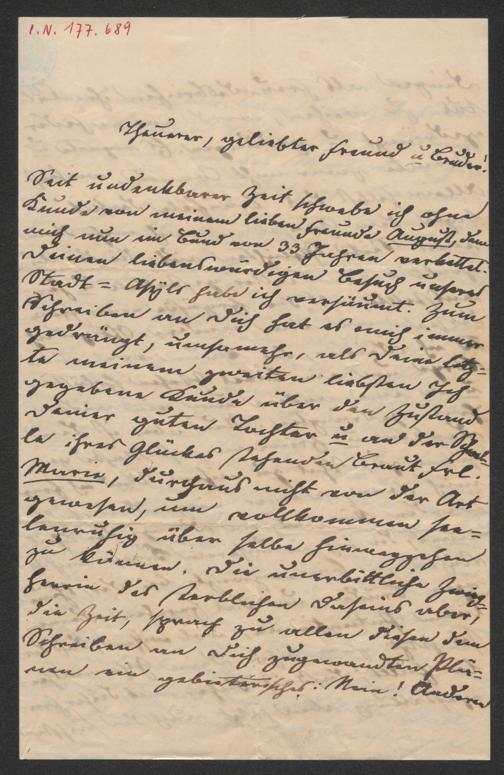 I.N. 177.689
Theuerer, geliebter Freund u Bruder!
Seit undenkbarer Zeit schwebe ich ohne
Kunde von meinem lieben Freunde August, dem
mich nun im Bund von 33 Jahren verkettet.
Deinen liebenswürdigen Besuch unseres
Stadt=Asyls habe ich versäumt. Zum
Schreiben an Dich hat es mich immer
gedrängt, umsomehr, als Deine letz=
te meinem zweiten liebsten Ich
gegebene Kunde über den Zustand
Deiner guten Tochter u an der Schwel=
le ihres Glückes stehenden Braut Frl.
Marie, durchaus nicht von der Art
gewesen, um vollkommen see=
lenruhig über selbe hinweggehen
zu können. Die unerbittliche Zwing=
herrin des sterblichen Daseins aber,
die Zeit, sprach zu allen diesen dem
Schreiben an Dich zugewandten Plä=
nen ein gebieterisches: Nein! Anderen